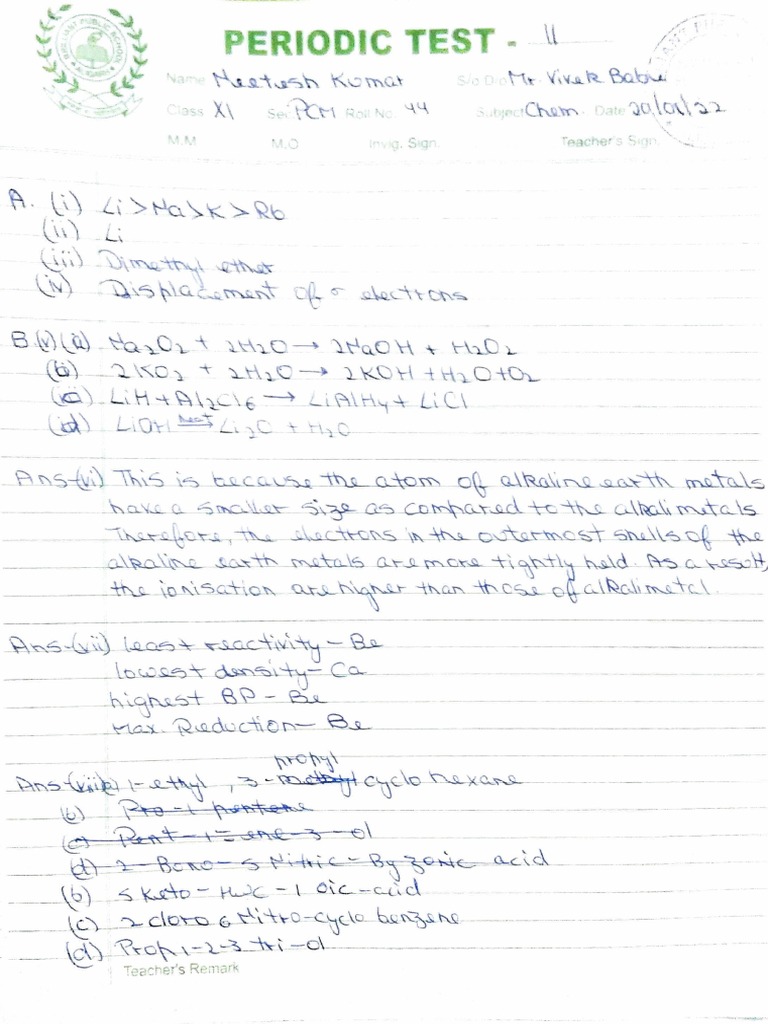 PERIODIC TEST - II
Name Neetesh Kumar S/o.D/o Mr. Vivek Babu
Class XI Sec PCM Roll No. 44 Subject Chem. Date 20/01/22
M.M M.O Invig. Sign. Teacher's Sign.
A. (i) Li > Na > K > Rb
(ii) Li
(iii) Dimethyl ether
(iv) Displacement of σ electrons
B.(v)(a) Na2O2 + 2H2O → 2NaOH + H2O2
(b) 2KO2 + 2H2O → 2KOH + H2O + O2
(c) LiH + Al2Cl6 → LiAlH4 + LiCl
(d) LiOH heat→ Li2O + H2O
Ans-(vi) This is because the atom of alkaline earth metals
have a smaller size as compared to the alkali metals
Therefore, the electrons in the outermost shells of the
alkaline earth metals are more tightly held. As a result,
the ionisation are higher than those of alkali metal.
Ans-(vii) least reactivity - Be
lowest density - Ca
highest BP - Be
Max. Reduction - Be
Ans-(viii)(a) 1-ethyl, 3-methyl propyl cyclo hexane
(b) Pro-1 pentene
(c) Pent-1-ene-3-ol
(d) 2-Bono-5 Nitric-By zonic acid
(b) 5 Keto-Hex-1 oic-acid
(c) 2 cloro 6 Nitro-cyclo benzene
(d) Prop 1-2-3 tri-ol
Teacher's Remark